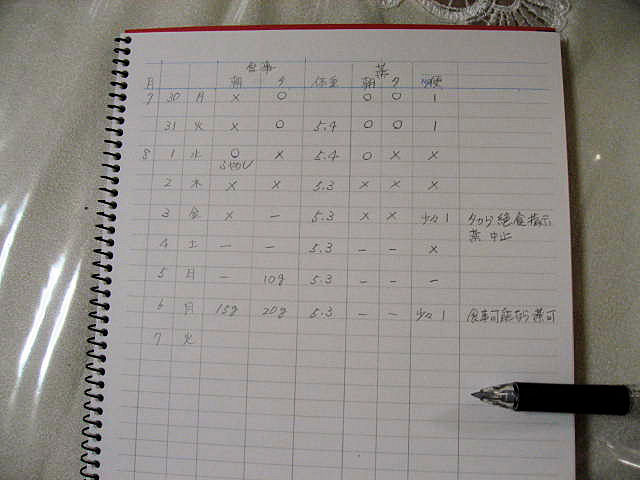 食事 薬
月 朝 夕 体重 朝 夕
7 30 月 × ○ ○ ○ 1
31 火 × ○ 5.4 ○ ○ 1
8 1 水 ○ × 5.4 ○ × ×
2 木 × × 5.3 × × ×
3 金 × - 5.3 × × 少々1 夕から絶食指示
薬中止
4 土 - - 5.3 - - ×
5 日 - 10g 5.3 - - -
6 月 15g 20g 5.3 - - 少々1 食事可能なら薬可
7 火